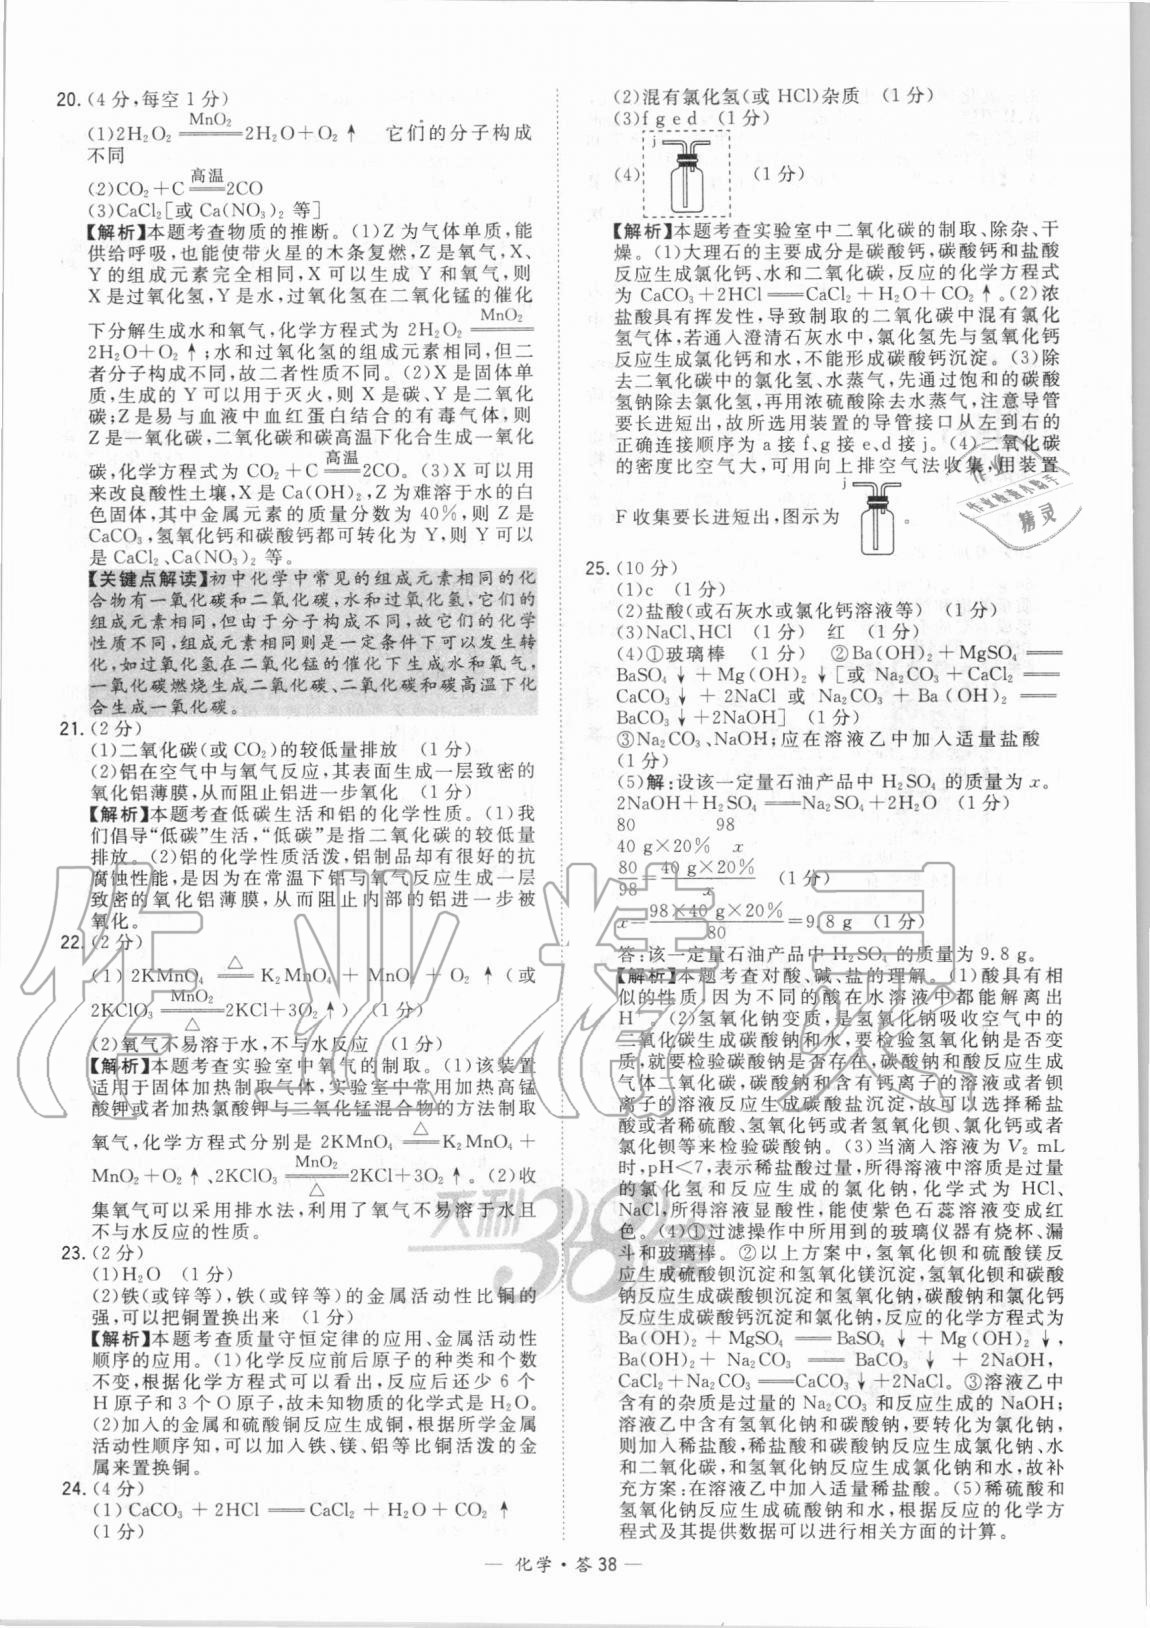 20.(4分,每空1分)
(1)2H₂O₂ =MnO₂= 2H₂O+O₂↑ 它们的分子构成
不同
(2)CO₂+C =高温= 2CO
(3)CaCl₂[或Ca(NO₃)₂等]
【解析】本题考查物质的推断。(1)Z为气体单质,能
供给呼吸,也能使带火星的木条复燃,Z是氧气,X、
Y的组成元素完全相同,X可以生成Y和氧气,则
X是过氧化氢,Y是水,过氧化氢在二氧化锰的催化
下分解生成水和氧气,化学方程式为2H₂O₂ =MnO₂=
2H₂O+O₂↑;水和过氧化氢的组成元素相同,但二
者分子构成不同,故二者性质不同。(2)X是固体单
质,生成的Y可以用于灭火,则X是碳、Y是二氧化
碳;Z是易与血液中血红蛋白结合的有毒气体,则
Z是一氧化碳,二氧化碳和碳高温下化合生成一氧化
碳,化学方程式为CO₂+C =高温= 2CO。(3)X可以用
来改良酸性土壤,X是Ca(OH)₂,Z为难溶于水的白
色固体,其中金属元素的质量分数为40%,则Z是
CaCO₃,氢氧化钙和碳酸钙都可转化为Y,则Y可以
是CaCl₂、Ca(NO₃)₂等。
【关键点解读】初中化学中常见的组成元素相同的化
合物有一氧化碳和二氧化碳,水和过氧化氢,它们的
组成元素相同,但由于分子构成不同,故它们的化学
性质不同,组成元素相同则是一定条件下可以发生转
化,如过氧化氢在二氧化锰的催化下生成水和氧气,
一氧化碳燃烧生成二氧化碳、二氧化碳和碳高温下化
合生成一氧化碳。
21.(2分)
(1)二氧化碳(或CO₂)的较低量排放 (1分)
(2)铝在空气中与氧气反应,其表面生成一层致密的
氧化铝薄膜,从而阻止铝进一步氧化 (1分)
【解析】本题考查低碳生活和铝的化学性质。(1)我
们倡导“低碳”生活,“低碳”是指二氧化碳的较低量
排放。(2)铝的化学性质活泼,铝制品却有很好的抗
腐蚀性能,是因为在常温下铝与氧气反应生成一层
致密的氧化铝薄膜,从而阻止内部的铝进一步被
氧化。
22.(2分)
(1)2KMnO₄ =△= K₂MnO₄+MnO₂+O₂↑(或
2KClO₃ =MnO₂/△= 2KCl+3O₂↑) (1分)
(2)氧气不易溶于水,不与水反应 (1分)
【解析】本题考查实验室中氧气的制取。(1)该装置
适用于固体加热制取气体,实验室中常用加热高锰
酸钾或者加热氯酸钾与二氧化锰混合物的方法制取
氧气,化学方程式分别是2KMnO₄ =△= K₂MnO₄+
MnO₂+O₂↑、2KClO₃ =MnO₂/△= 2KCl+3O₂↑。(2)收
集氧气可以采用排水法,利用了氧气不易溶于水且
不与水反应的性质。
23.(2分)
(1)H₂O (1分)
(2)铁(或锌等),铁(或锌等)的金属活动性比铜的
强,可以把铜置换出来 (1分)
【解析】本题考查质量守恒定律的应用、金属活动性
顺序的应用。(1)化学反应前后原子的种类和个数
不变,根据化学方程式可以看出,反应后还少6个
H原子和3个O原子,故未知物质的化学式是H₂O。
(2)加入的金属和硫酸铜反应生成铜,根据所学金属
活动性顺序知,可以加入铁、镁、铝等比铜活泼的金
属来置换铜。
24.(4分)
(1)CaCO₃+2HCl══CaCl₂+H₂O+CO₂↑
(1分)
(2)混有氯化氢(或HCl)杂质 (1分)
(3)f g e d (1分)
(4) j (1分)
【解析】本题考查实验室中二氧化碳的制取、除杂、干
燥。(1)大理石的主要成分是碳酸钙,碳酸钙和盐酸
反应生成氯化钙、水和二氧化碳,反应的化学方程式
为CaCO₃+2HCl══CaCl₂+H₂O+CO₂↑。(2)浓
盐酸具有挥发性,导致制取的二氧化碳中混有氯化
氢气体,若通入澄清石灰水中,氯化氢先与氢氧化钙
反应生成氯化钙和水,不能形成碳酸钙沉淀。(3)除
去二氧化碳中的氯化氢、水蒸气,先通过饱和的碳酸
氢钠除去氯化氢,再用浓硫酸除去水蒸气,注意导管
要长进短出,故所选用装置的导管接口从左到右的
正确连接顺序为a接f、g接e、d接j。(4)二氧化碳
的密度比空气大,可用向上排空气法收集,用装置
F收集要长进短出,图示为 j 。
25.(10分)
(1)c (1分)
(2)盐酸(或石灰水或氯化钙溶液等) (1分)
(3)NaCl、HCl (1分) 红 (1分)
(4)①玻璃棒 (1分) ②Ba(OH)₂+MgSO₄══
BaSO₄↓+Mg(OH)₂↓[或Na₂CO₃+CaCl₂══
CaCO₃↓+2NaCl或Na₂CO₃+Ba(OH)₂══
BaCO₃↓+2NaOH] (1分)
③Na₂CO₃、NaOH;应在溶液乙中加入适量盐酸
(1分)
(5)解:设该一定量石油产品中H₂SO₄的质量为x。
2NaOH+H₂SO₄══Na₂SO₄+2H₂O (1分)
80 98
40 g×20% x
80/98=40 g×20%/x (1分)
x=98×40 g×20%/80=9.8 g (1分)
答:该一定量石油产品中H₂SO₄的质量为9.8 g。
【解析】本题考查对酸、碱、盐的理解。(1)酸具有相
似的性质,因为不同的酸在水溶液中都能解离出
H⁺。(2)氢氧化钠变质,是氢氧化钠吸收空气中的
二氧化碳生成碳酸钠和水,要检验氢氧化钠是否变
质,就要检验碳酸钠是否存在,碳酸钠和酸反应生成
气体二氧化碳,碳酸钠和含有钙离子的溶液或者钡
离子的溶液反应生成碳酸盐沉淀,故可以选择稀盐
酸或者稀硫酸、氢氧化钙或者氢氧化钡、氯化钙或者
氯化钡等来检验碳酸钠。(3)当滴入溶液为V₂ mL
时,pH<7,表示稀盐酸过量,所得溶液中溶质是过量
的氯化氢和反应生成的氯化钠,化学式为HCl、
NaCl,所得溶液显酸性,能使紫色石蕊溶液变成红
色。(4)①过滤操作中所用到的玻璃仪器有烧杯、漏
斗和玻璃棒。②以上方案中,氢氧化钡和硫酸镁反
应生成硫酸钡沉淀和氢氧化镁沉淀,氢氧化钡和碳酸
钠反应生成碳酸钡沉淀和氢氧化钠,碳酸钠和氯化钙
反应生成碳酸钙沉淀和氯化钠,反应的化学方程式为
Ba(OH)₂+MgSO₄══BaSO₄↓+Mg(OH)₂↓,
Ba(OH)₂+Na₂CO₃══BaCO₃↓+2NaOH,
CaCl₂+Na₂CO₃══CaCO₃↓+2NaCl。③溶液乙中
含有的杂质是过量的Na₂CO₃和反应生成的NaOH;
溶液乙中含有氢氧化钠和碳酸钠,要转化为氯化钠,
则加入稀盐酸,稀盐酸和碳酸钠反应生成氯化钠、水
和二氧化碳,和氢氧化钠反应生成氯化钠和水,故补
充方案:在溶液乙中加入适量稀盐酸。(5)稀硫酸和
氢氧化钠反应生成硫酸钠和水,根据反应的化学方
程式及其提供数据可以进行相关方面的计算。
— 化学·答38 —
作业精灵
天利38套
作业
作业检查小助手
精灵